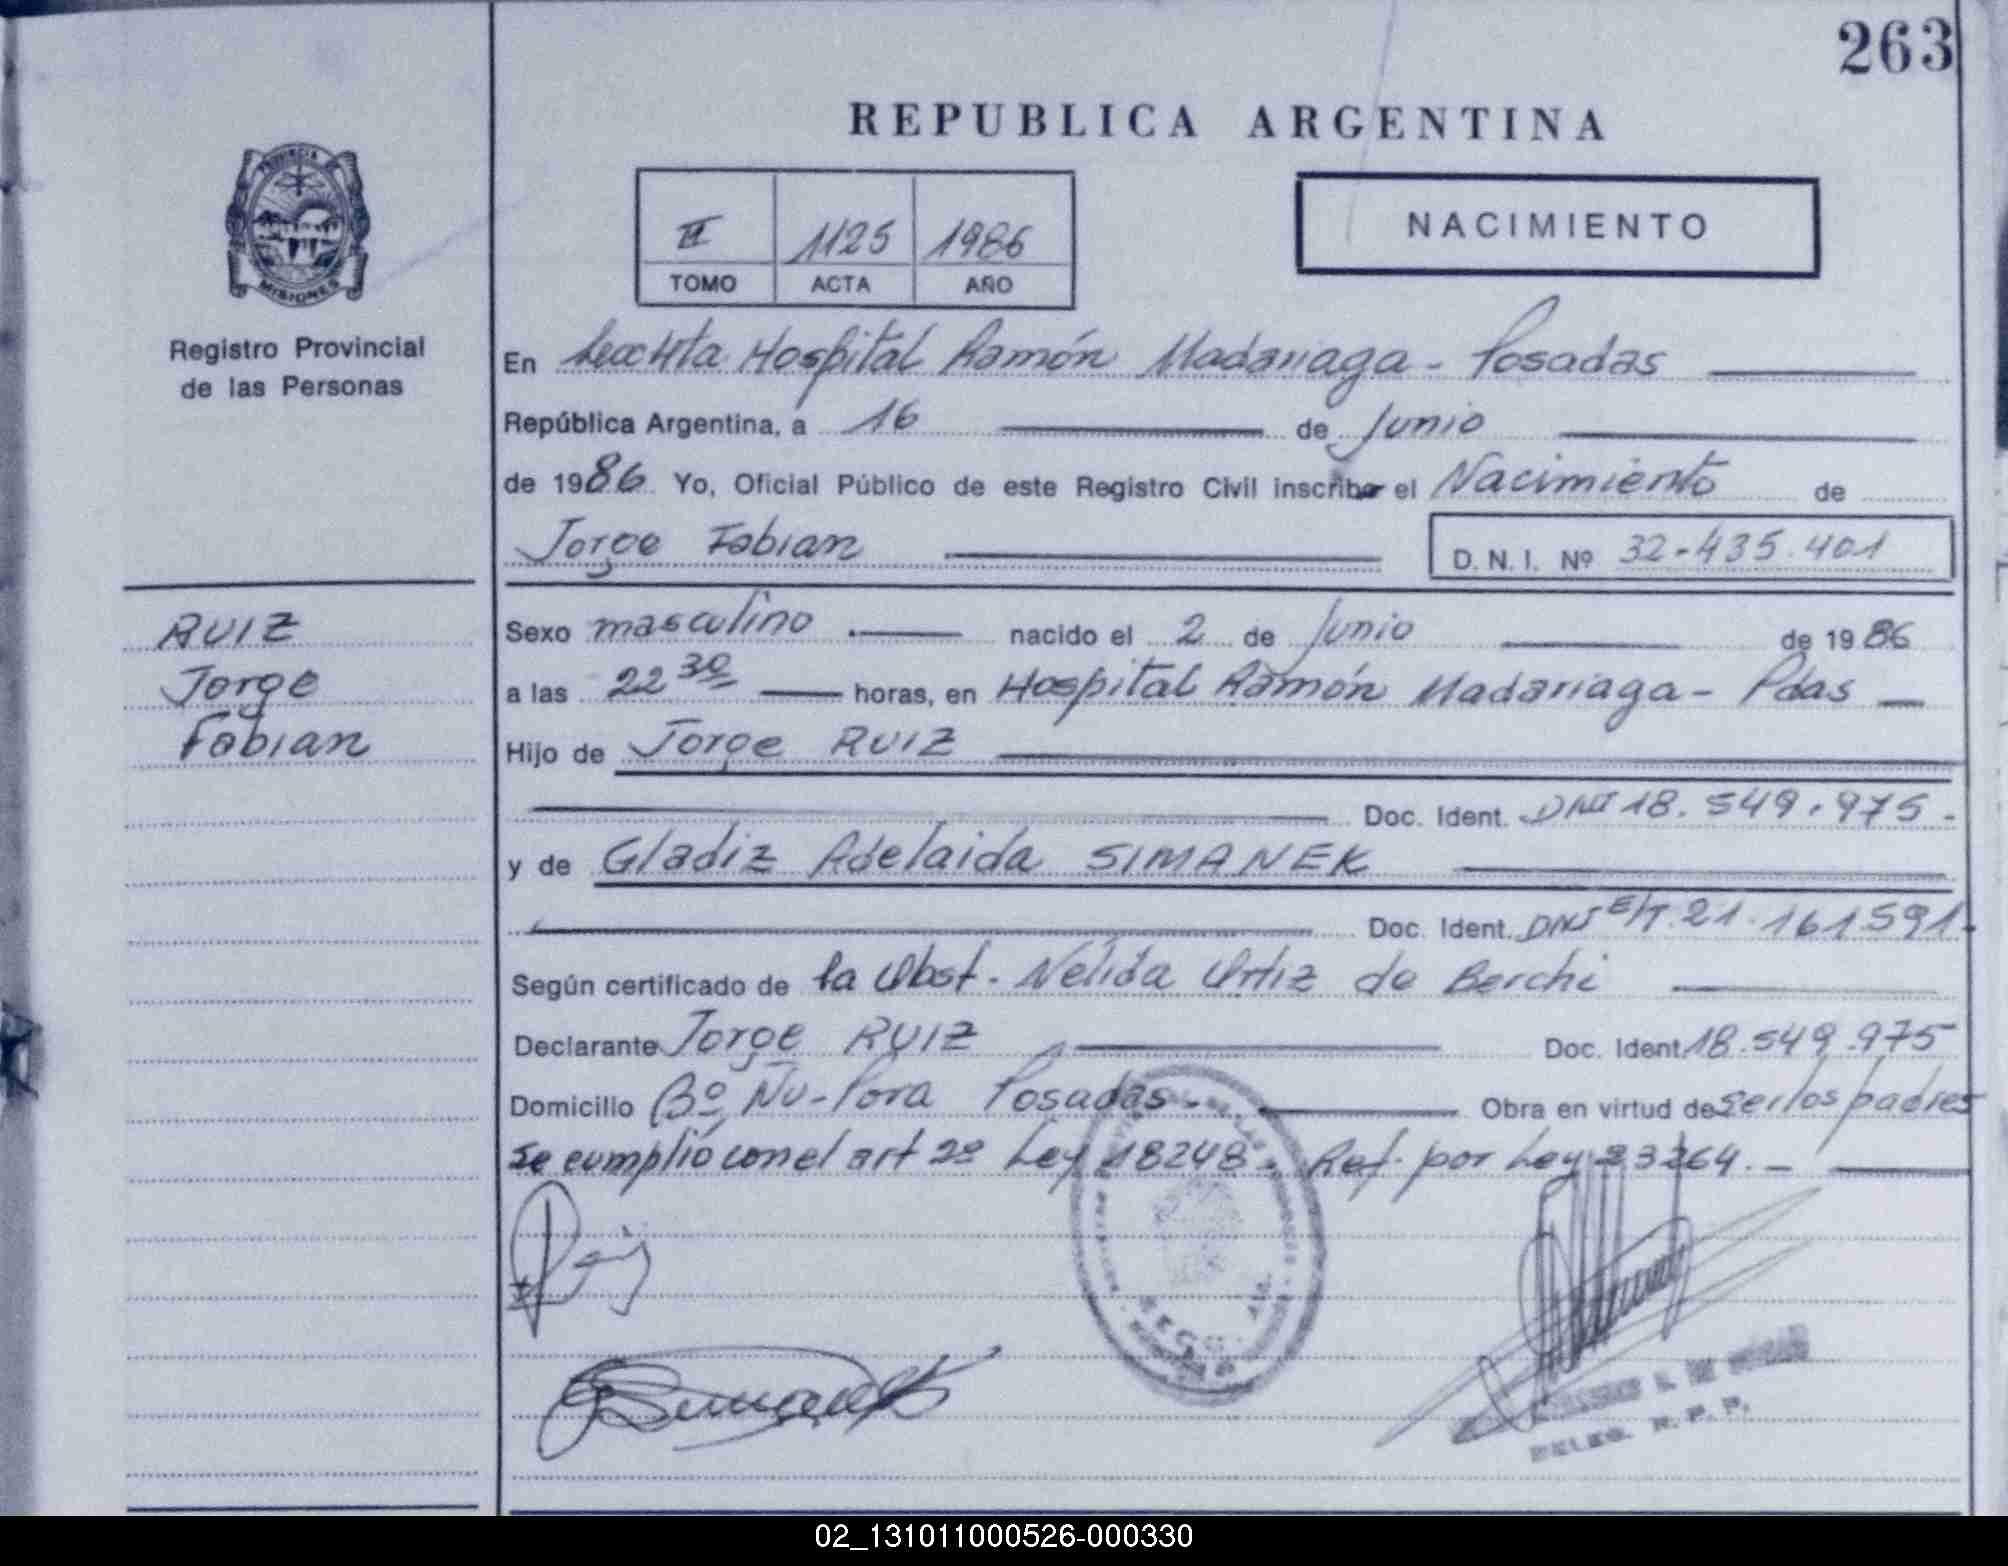 263
REPUBLICA ARGENTINA
PROVINCIA
MISIONES
Registro Provincial
de las Personas
II 1125 1986
TOMO ACTA AÑO
NACIMIENTO
En Hospital Ramón Madariaga - Posadas
República Argentina, a 16 de Junio
de 1986 Yo, Oficial Público de este Registro Civil inscribo el Nacimiento de
Jorge Fabian D. N. I. Nº 32-435.401
RUIZ
Jorge
Fabian
Sexo masculino nacido el 2 de Junio de 1986
a las 22 30 horas, en Hospital Ramón Madariaga - Pdas
Hijo de Jorge RUIZ
Doc. Ident. DNI 18.549.975-
y de Gladiz Adelaida SIMANEK
Doc. Ident. DNI E/T. 21.161.591-
Según certificado de la Obst. Nelida Ortiz de Berchi
Declarante Jorge RUIZ Doc. Ident. 18.549.975
Domicilio Bº Ñu-Pora Posadas- Obra en virtud de ser los padres
se cumplió con el art 2º Ley 18248- Ref. por Ley 23264.-
DELEG. R. P. P.
02_131011000526-000330